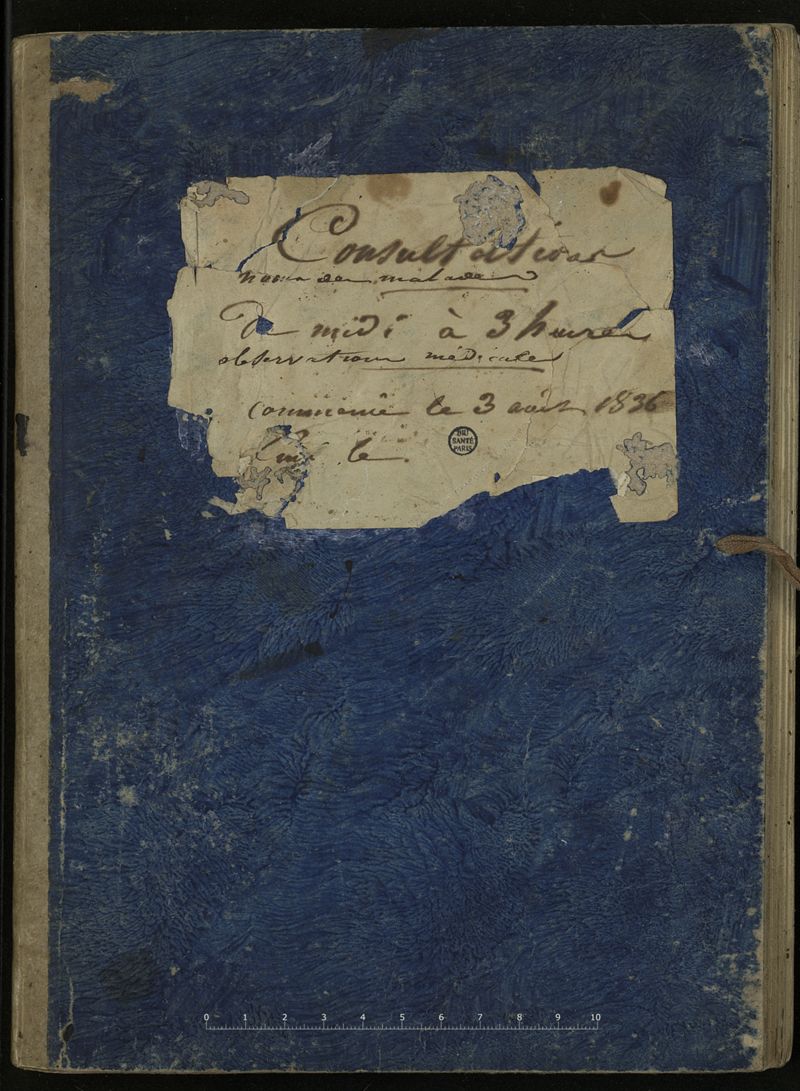 Consultations
noms des malades
De midi à 3 heures
observations médicales
commencé le 3 août 1836
fini le
BIU
SANTÉ
PARIS
0 1 2 3 4 5 6 7 8 9 10